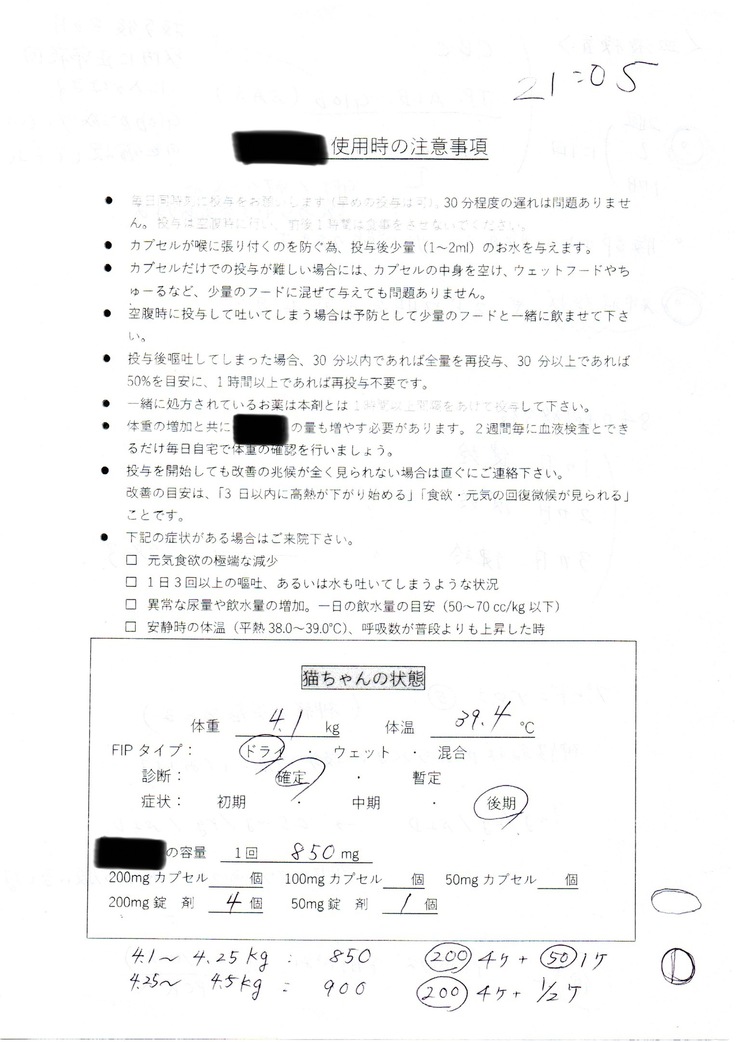 21:05
使用時の注意事項
● 毎日同時刻に投与をお願いします(早めの投与は可)。30分程度の遅れは問題ありませ
ん。投与は空腹時に行い、前後1時間は食事をさせないでください。
● カプセルが喉に張り付くのを防ぐ為、投与後少量(1~2ml)のお水を与えます。
● カプセルだけでの投与が難しい場合には、カプセルの中身を空け、ウェットフードやち
ゅーるなど、少量のフードに混ぜて与えても問題ありません。
● 空腹時に投与して吐いてしまう場合は予防として少量のフードと一緒に飲ませて下さ
い。
● 投与後嘔吐してしまった場合、30分以内であれば全量を再投与、30分以上であれば
50%を目安に、1時間以上であれば再投与不要です。
● 一緒に処方されているお薬は本剤とは1時間以上間隔をあけて投与して下さい。
● 体重の増加と共に の量も増やす必要があります。2週間毎に血液検査とでき
るだけ毎日自宅で体重の確認を行いましょう。
● 投与を開始しても改善の兆候が全く見られない場合は直ぐにご連絡下さい。
改善の目安は、「3日以内に高熱が下がり始める」「食欲・元気の回復微候が見られる」
ことです。
● 下記の症状がある場合はご来院下さい。
□ 元気食欲の極端な減少
□ 1日3回以上の嘔吐、あるいは水も吐いてしまうような状況
□ 異常な尿量や飲水量の増加。一日の飲水量の目安(50~70 cc/kg以下)
□ 安静時の体温(平熱38.0~39.0℃)、呼吸数が普段よりも上昇した時
猫ちゃんの状態
体重 4.1 kg 体温 39.4 ℃
FIPタイプ: ドライ ・ ウェット ・ 混合
診断: 確定 ・ 暫定
症状: 初期 ・ 中期 ・ 後期
の容量 1回 850 mg
200mgカプセル 個 100mgカプセル 個 50mgカプセル 個
200mg錠 剤 4 個 50mg錠 剤 1 個
4.1~ 4.25kg : 850 200 4ケ + 50 1ケ
4.25~ 4.5kg : 900 200 4ケ + 1/2ケ